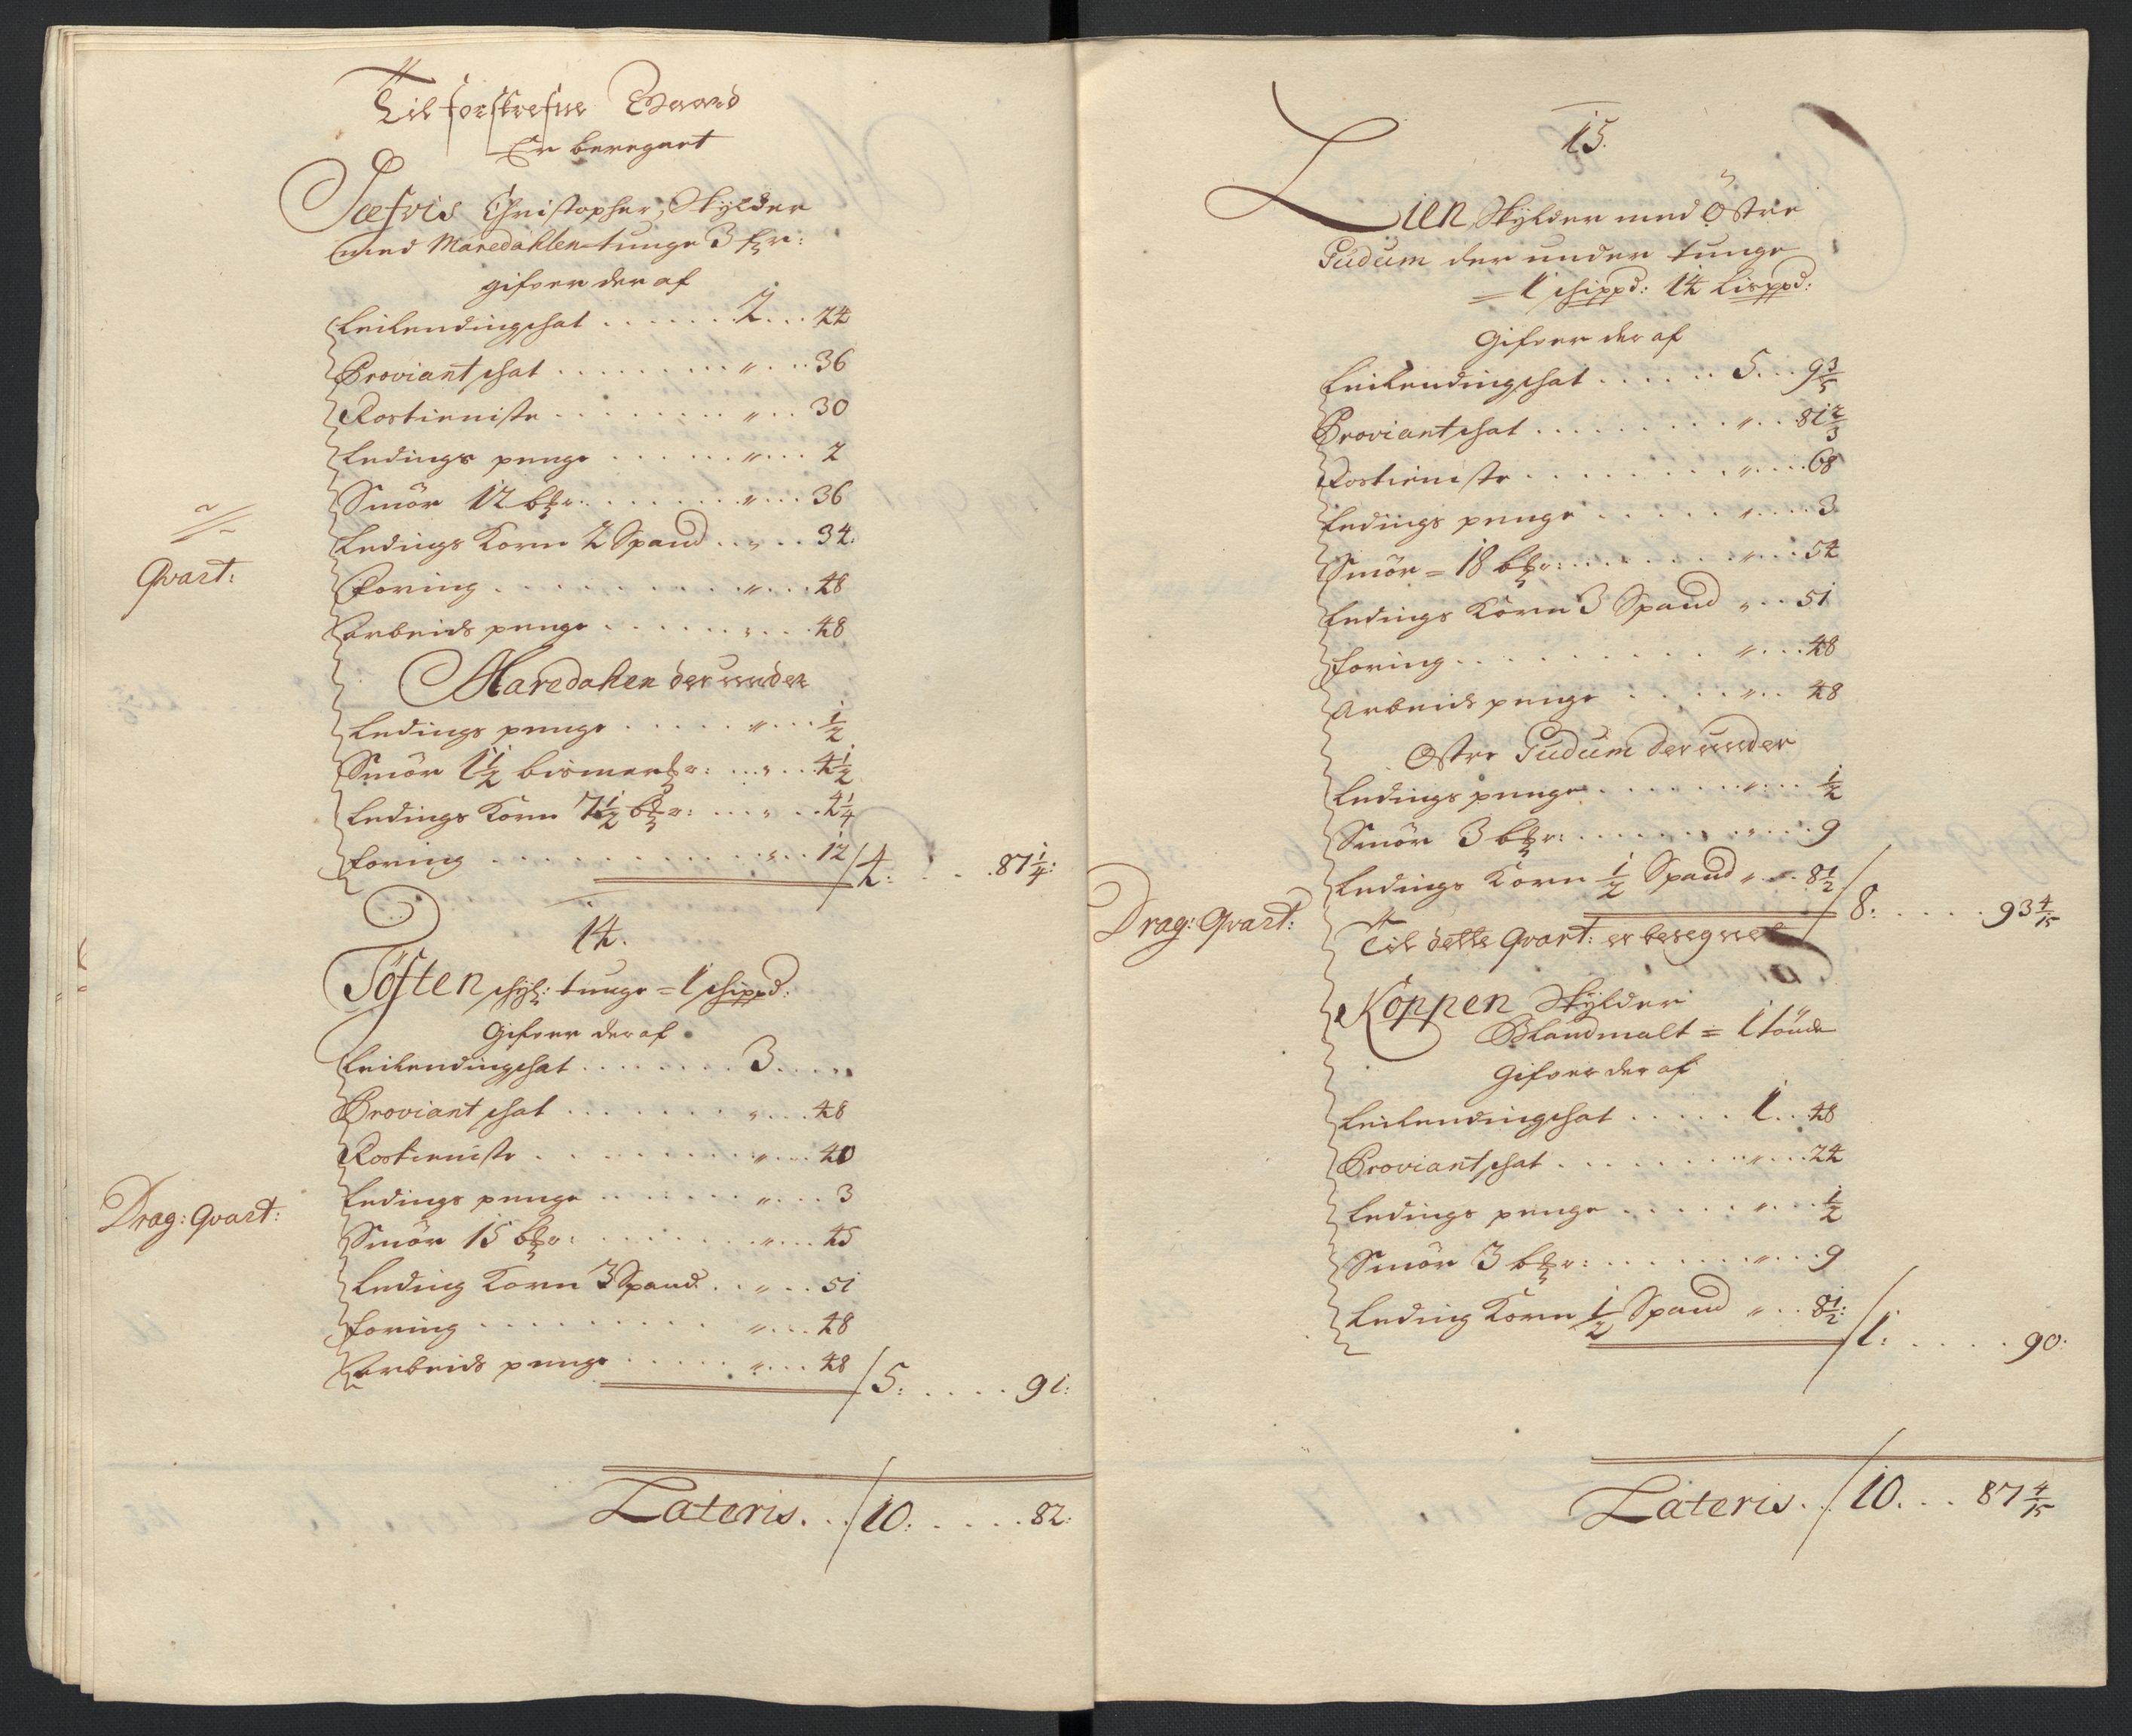 Til forskrefne Gaard
Er beregnet
Sæfvis Christopher, Skylder
med Maredahlen tunge 3 hr:
gifver der af
Leilendingschat . . . . . . 2 . . . 24
Proviant schat . . . . . . . . . „ . . . 36
Rostieniste . . . . . . . . „ . . . 30
Ledings penge . . . . . . „ . . . 2
Smör 12 bpr: . . . . . . . „ . . . 36
Ledings Korn 2 Spand . . „ . . 34
Qvart:
Foring . . . . . . . . . „ . . . 48
Arbeids penge . . . . . . „ . . . 48
Maredahlen der under
Ledings penge . . . . . „ . . . 1/2
Smör 1 1/2 bismerpr: . . . „ . . . 4 1/2
Ledings Korn 7 1/2 bpr: . . . „ . . 4 1/4
Foring . . . . . . . . . . . „ . . 12 / 4: . . . 87 1/4:
14.
Töften schyl: tunge = 1 schippd:
Gifver der af
Leilendingschat . . . . . . . 3 . . . „
Proviant schat . . . . . . . „ . . . 48
Rostieniste . . . . . . . . „ . . . 40
Ledings penge . . . . . . . „ . . . 3
Drag: Qvart:
Smör 15 bpr: . . . . . . . „ . . . 45
Leding Korn 3 Spand . . „ . . 51
Foring . . . . . . . . . „ . . . 48
Arbeids penge . . . . . „ . . . 48 / 5: . . . . 91:
Lateris . . / 10: . . . . . 82:
15.
Lien Skylder med Östre
Gudum der under tunge
= 1 schippd: 14 Lispd:
Gifver der af
Leilendingschat . . . . . . 5 . . . 9 3/5
Proviant schat . . . . . . . . . „ . . 81 2/3
Rostieniste . . . . . . . . . „ . . . 68
Ledings penge . . . . . „ . . . . 3
Smör = 18 bpr: . . . . . . . „ . . . 54
Ledings Korn 3 Spand „ . . 51
Foring . . . . . . . . . „ . . . 48
Arbeids penge . . . . . „ . . 48
Östre Gudum der under
Ledings penge . . . . . . . „ . . . 1/2
Smör 3 bpr: . . . . . . . „ . . . 9
Ledings Korn 1/2 Spand „ . . . 8 1/2 / 8: . . . . . 93 4/15
Drag: Qvart:
Til dette Qvart: er beregnet
Koppen Skylder
Blandmalt = 1 tönde
Gifver der af
Leilendingschat . . . . . 1 . . 48
Proviant schat . . . . . . . . „ . . . 24
Ledings penge . . . . . „ . . . 1/2
Smör 3 bpr: . . . . . . „ . . . 9
Leding Korn 1/2 Spand „ . . 8 1/2: / 1: . . . . 90:
Lateris . . / 10 . . . 87 4/15